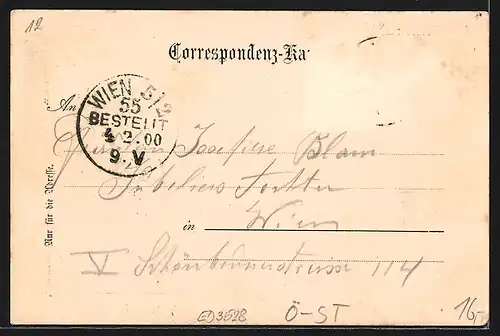 12
Correspondenz-Ka
An
WIEN 5/2
55
BESTELLT
4 2.00
9. V
Josefine Blam
Tochter
in Wien
V Schönbrunnerstrasse 114
Nur für die Adresse.
ED3528
Ö-ST
16,-